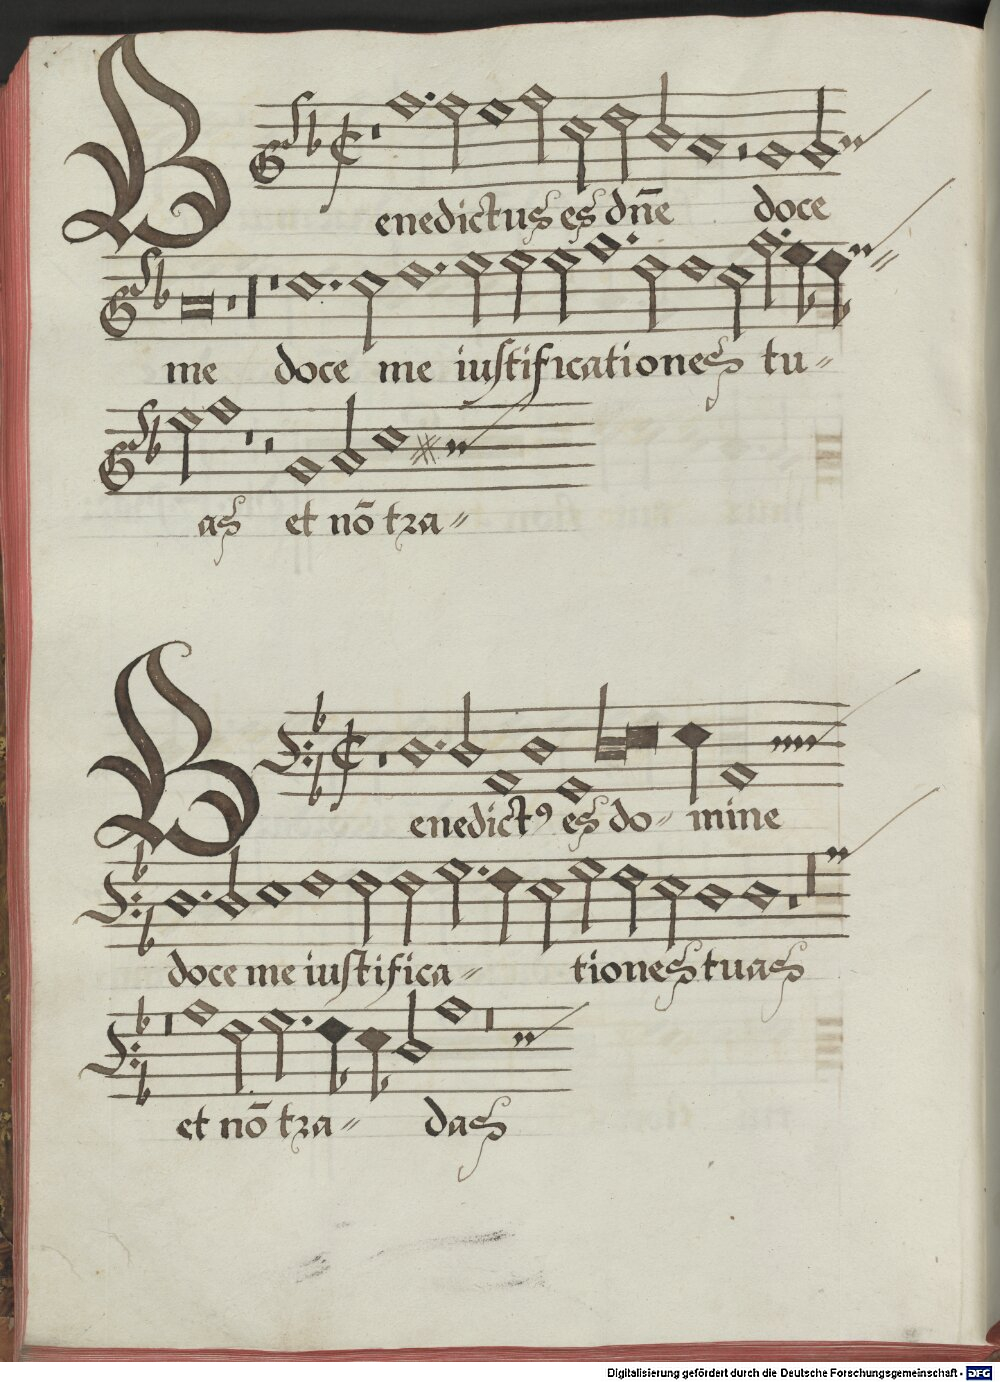 Benedictus es dn̄e doce
me doce me iustificationes tu-
as et nō tra-
Benedict⁹ es do- mine
doce me iustifica- tiones tuas
et nō tra- das
Digitalisierung gefördert durch die Deutsche Forschungsgemeinschaft - DFG